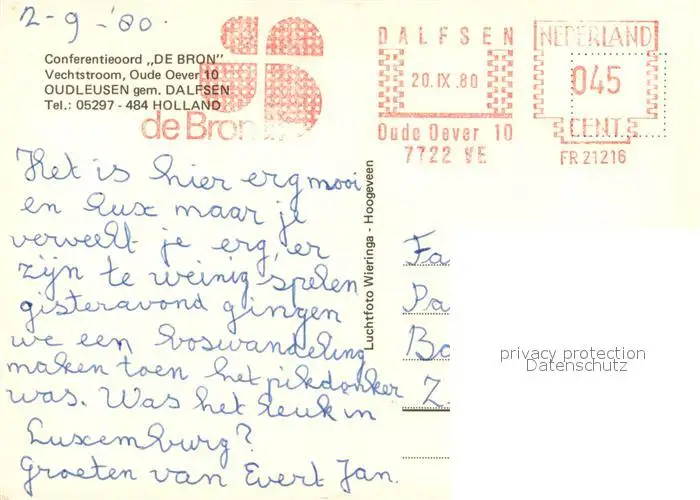 2-9-'80
Conferentieoord „DE BRON"
Vechtstroom, Oude Oever 10
OUDLEUSEN gem. DALFSEN
Tel.: 05297 - 484 HOLLAND
de Bron
DALFSEN
20.IX.80
Oude Oever 10
7722 VE
NEDERLAND
045
CENT
FR 21216
Het is hier erg mooi
en lux maar je
verveelt je erg, er
zijn te weinig spelen
gisteravond gingen
we een boswandeling
maken toen het pikdonker
was. Was het leuk in
Luxemburg?
Groeten van Evert Jan.
Luchtfoto Wieringa - Hoogeveen
Fa
Pa
Bo
Z
privacy protection
Datenschutz